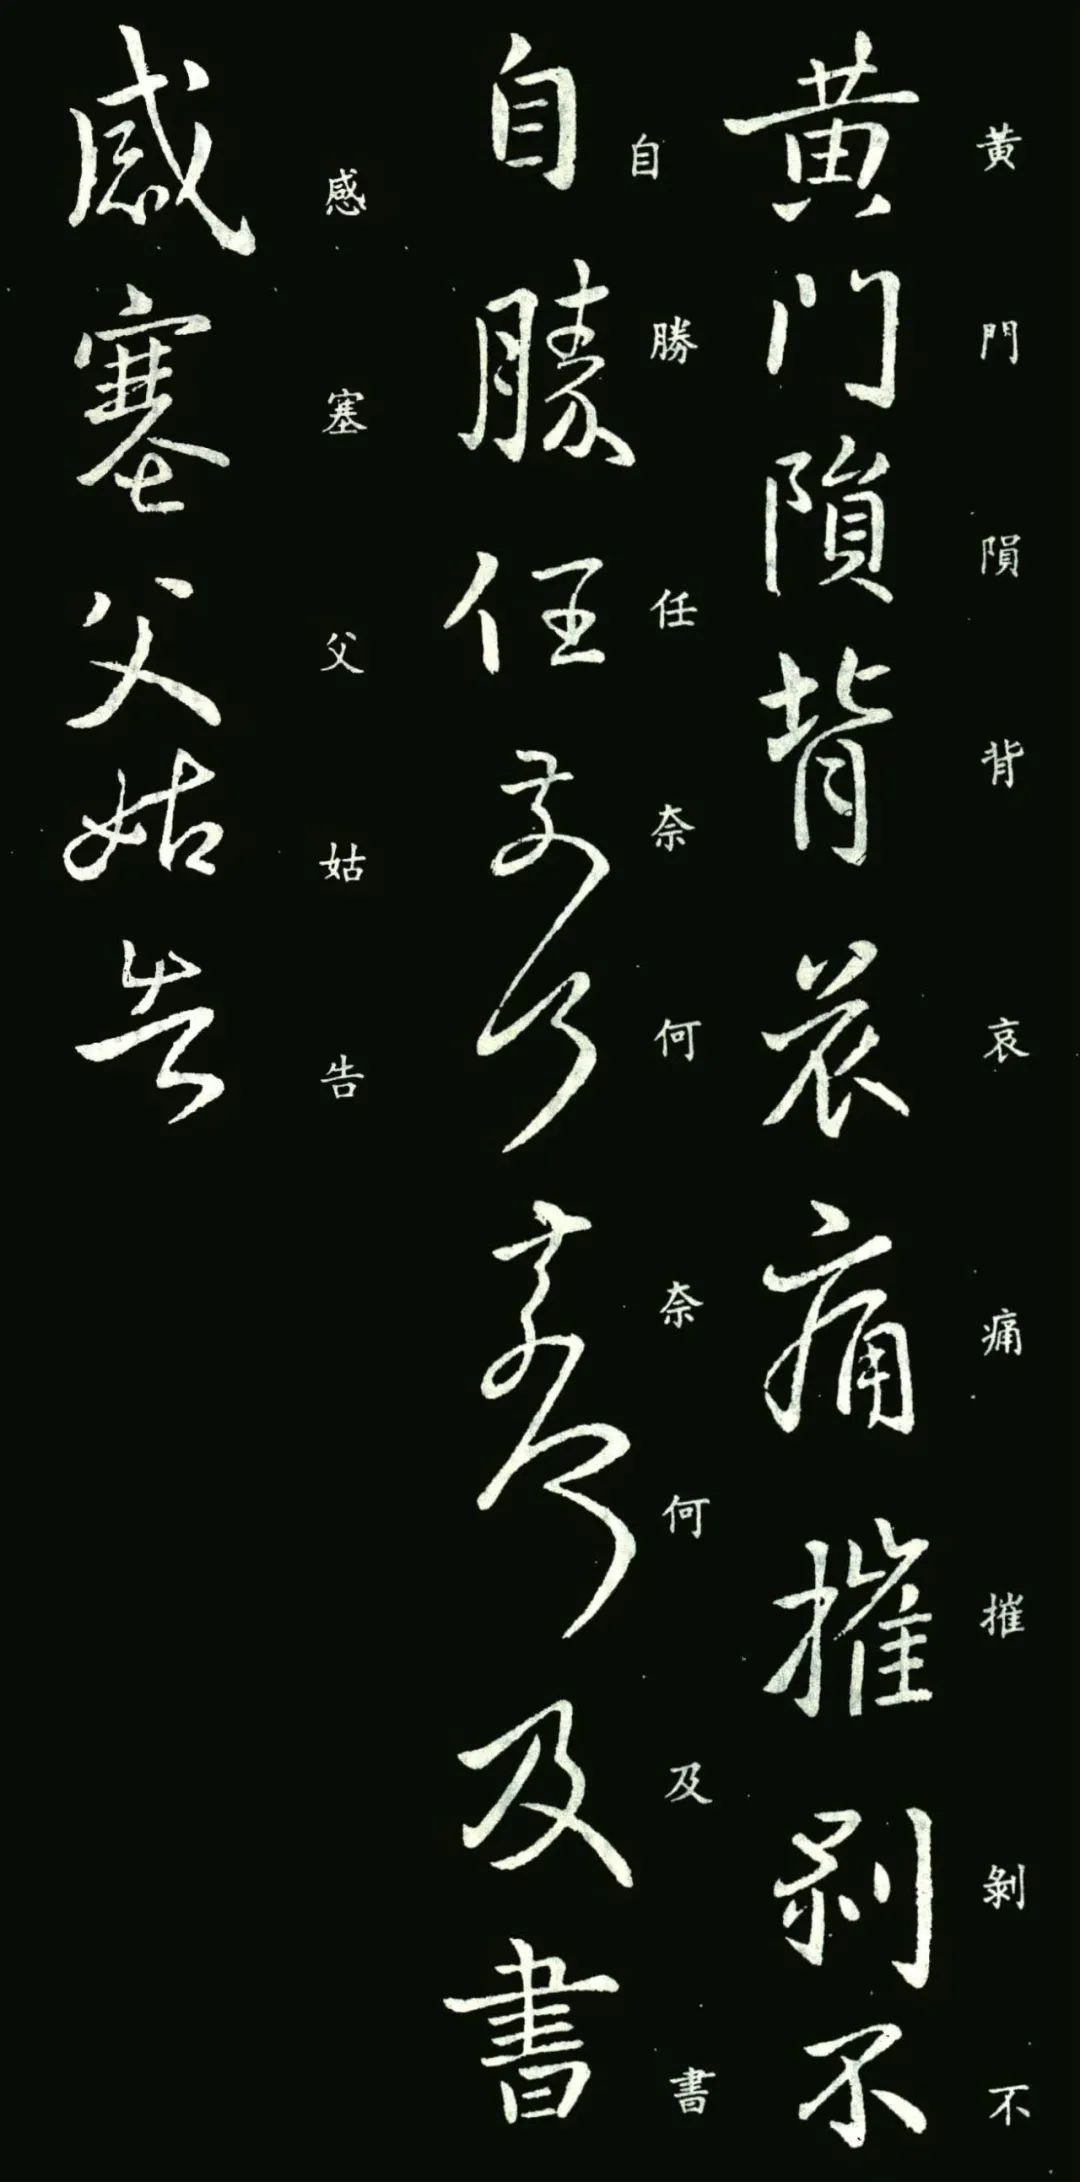 黄門隕背哀痛摧剝不
黄門隕背哀痛摧剝不
自勝任奈何奈何及書
自勝任奈何奈何及書
感塞父姑告
感塞父姑告